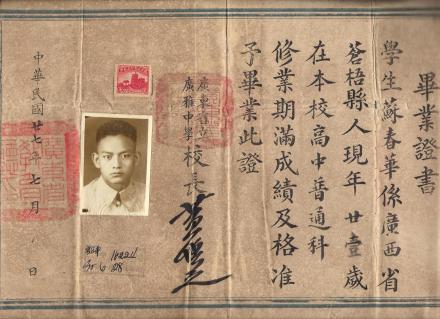 畢業證書
學生蘇春華係廣西省
蒼梧縣人現年廿壹歲
在本校高中普通科
修業期滿成績及格准
予畢業此證
廣東省立
廣雅中學
校長
中華民國廿七年七月
日